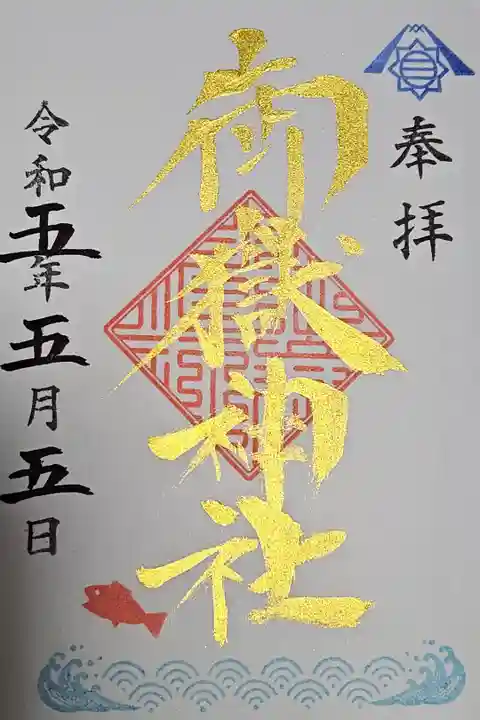 奉拝
御嶽神社
令和五年五月五日